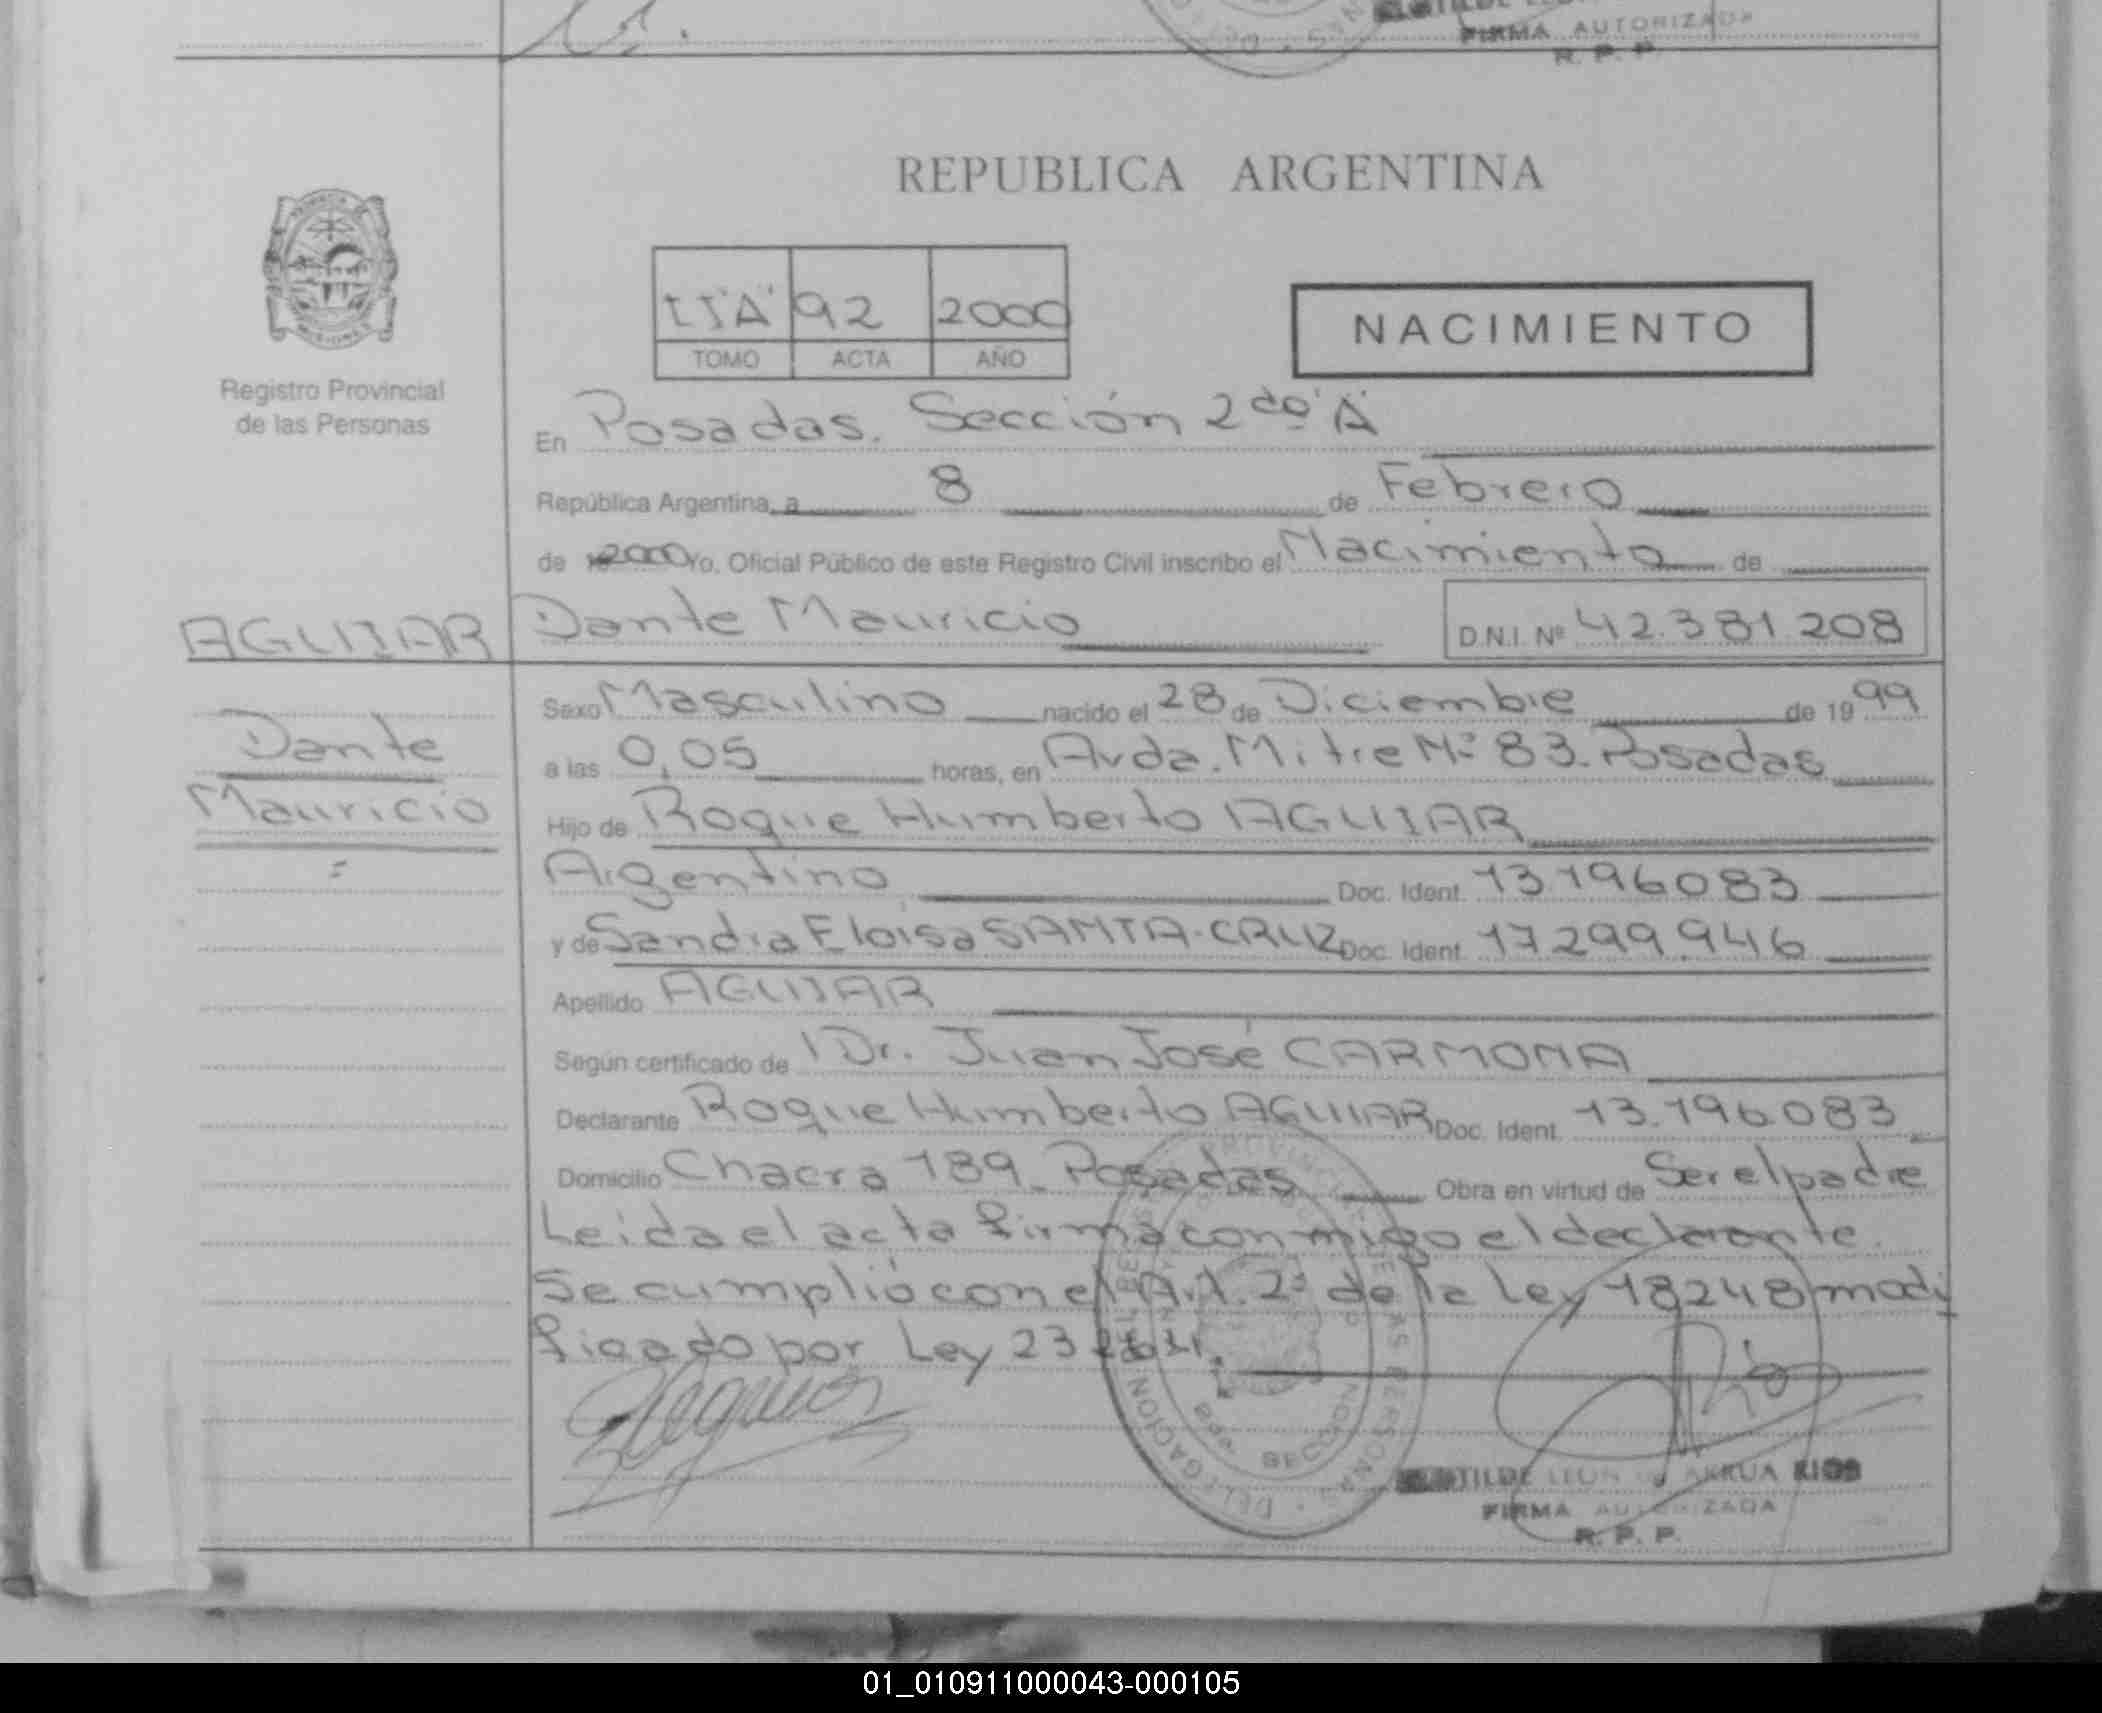 FIRMA AUTORIZADA
R. P. P.
REPUBLICA ARGENTINA
92 2000
TOMO ACTA AÑO
NACIMIENTO
Registro Provincial
de las Personas
En Posadas. Sección 2do "A"
República Argentina, a 8 de Febrero
de 2000 Yo, Oficial Público de este Registro Civil inscribo el Nacimiento de
AGUIAR Dante Mauricio D.N.I. Nº 42.381.208
Sexo Masculino nacido el 28 de Diciembre de 1999
Dante
a las 0,05 horas, en Avda. Mitre Nº 83. Posadas
Mauricio
Hijo de Roque Humberto AGUIAR
Argentino Doc. Ident. 13.196.083
y de Sandra Eloisa SANTA-CRUZ Doc. Ident. 17.299.946
Apellido AGUIAR
Según certificado de Dr. Juan José CARMONA
Declarante Roque Humberto AGUIAR Doc. Ident. 13.196.083
Domicilio Chacra 189. Posadas Obra en virtud de Ser el padre
Leida el acta firma conmigo el declarante.
Se cumplió con el Art. 2º de la Ley 18248 modi
ficado por Ley 23
SECCION
DELEGACION
LEON DE ARRUA RIOS
FIRMA AUTORIZADA
R. P. P.
01_010911000043-000105